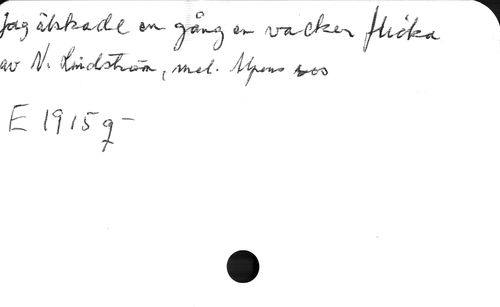 Jag älskade en gång en vacker flicka
av N. Lindström, mel. Alpens ros
E 1915 q -